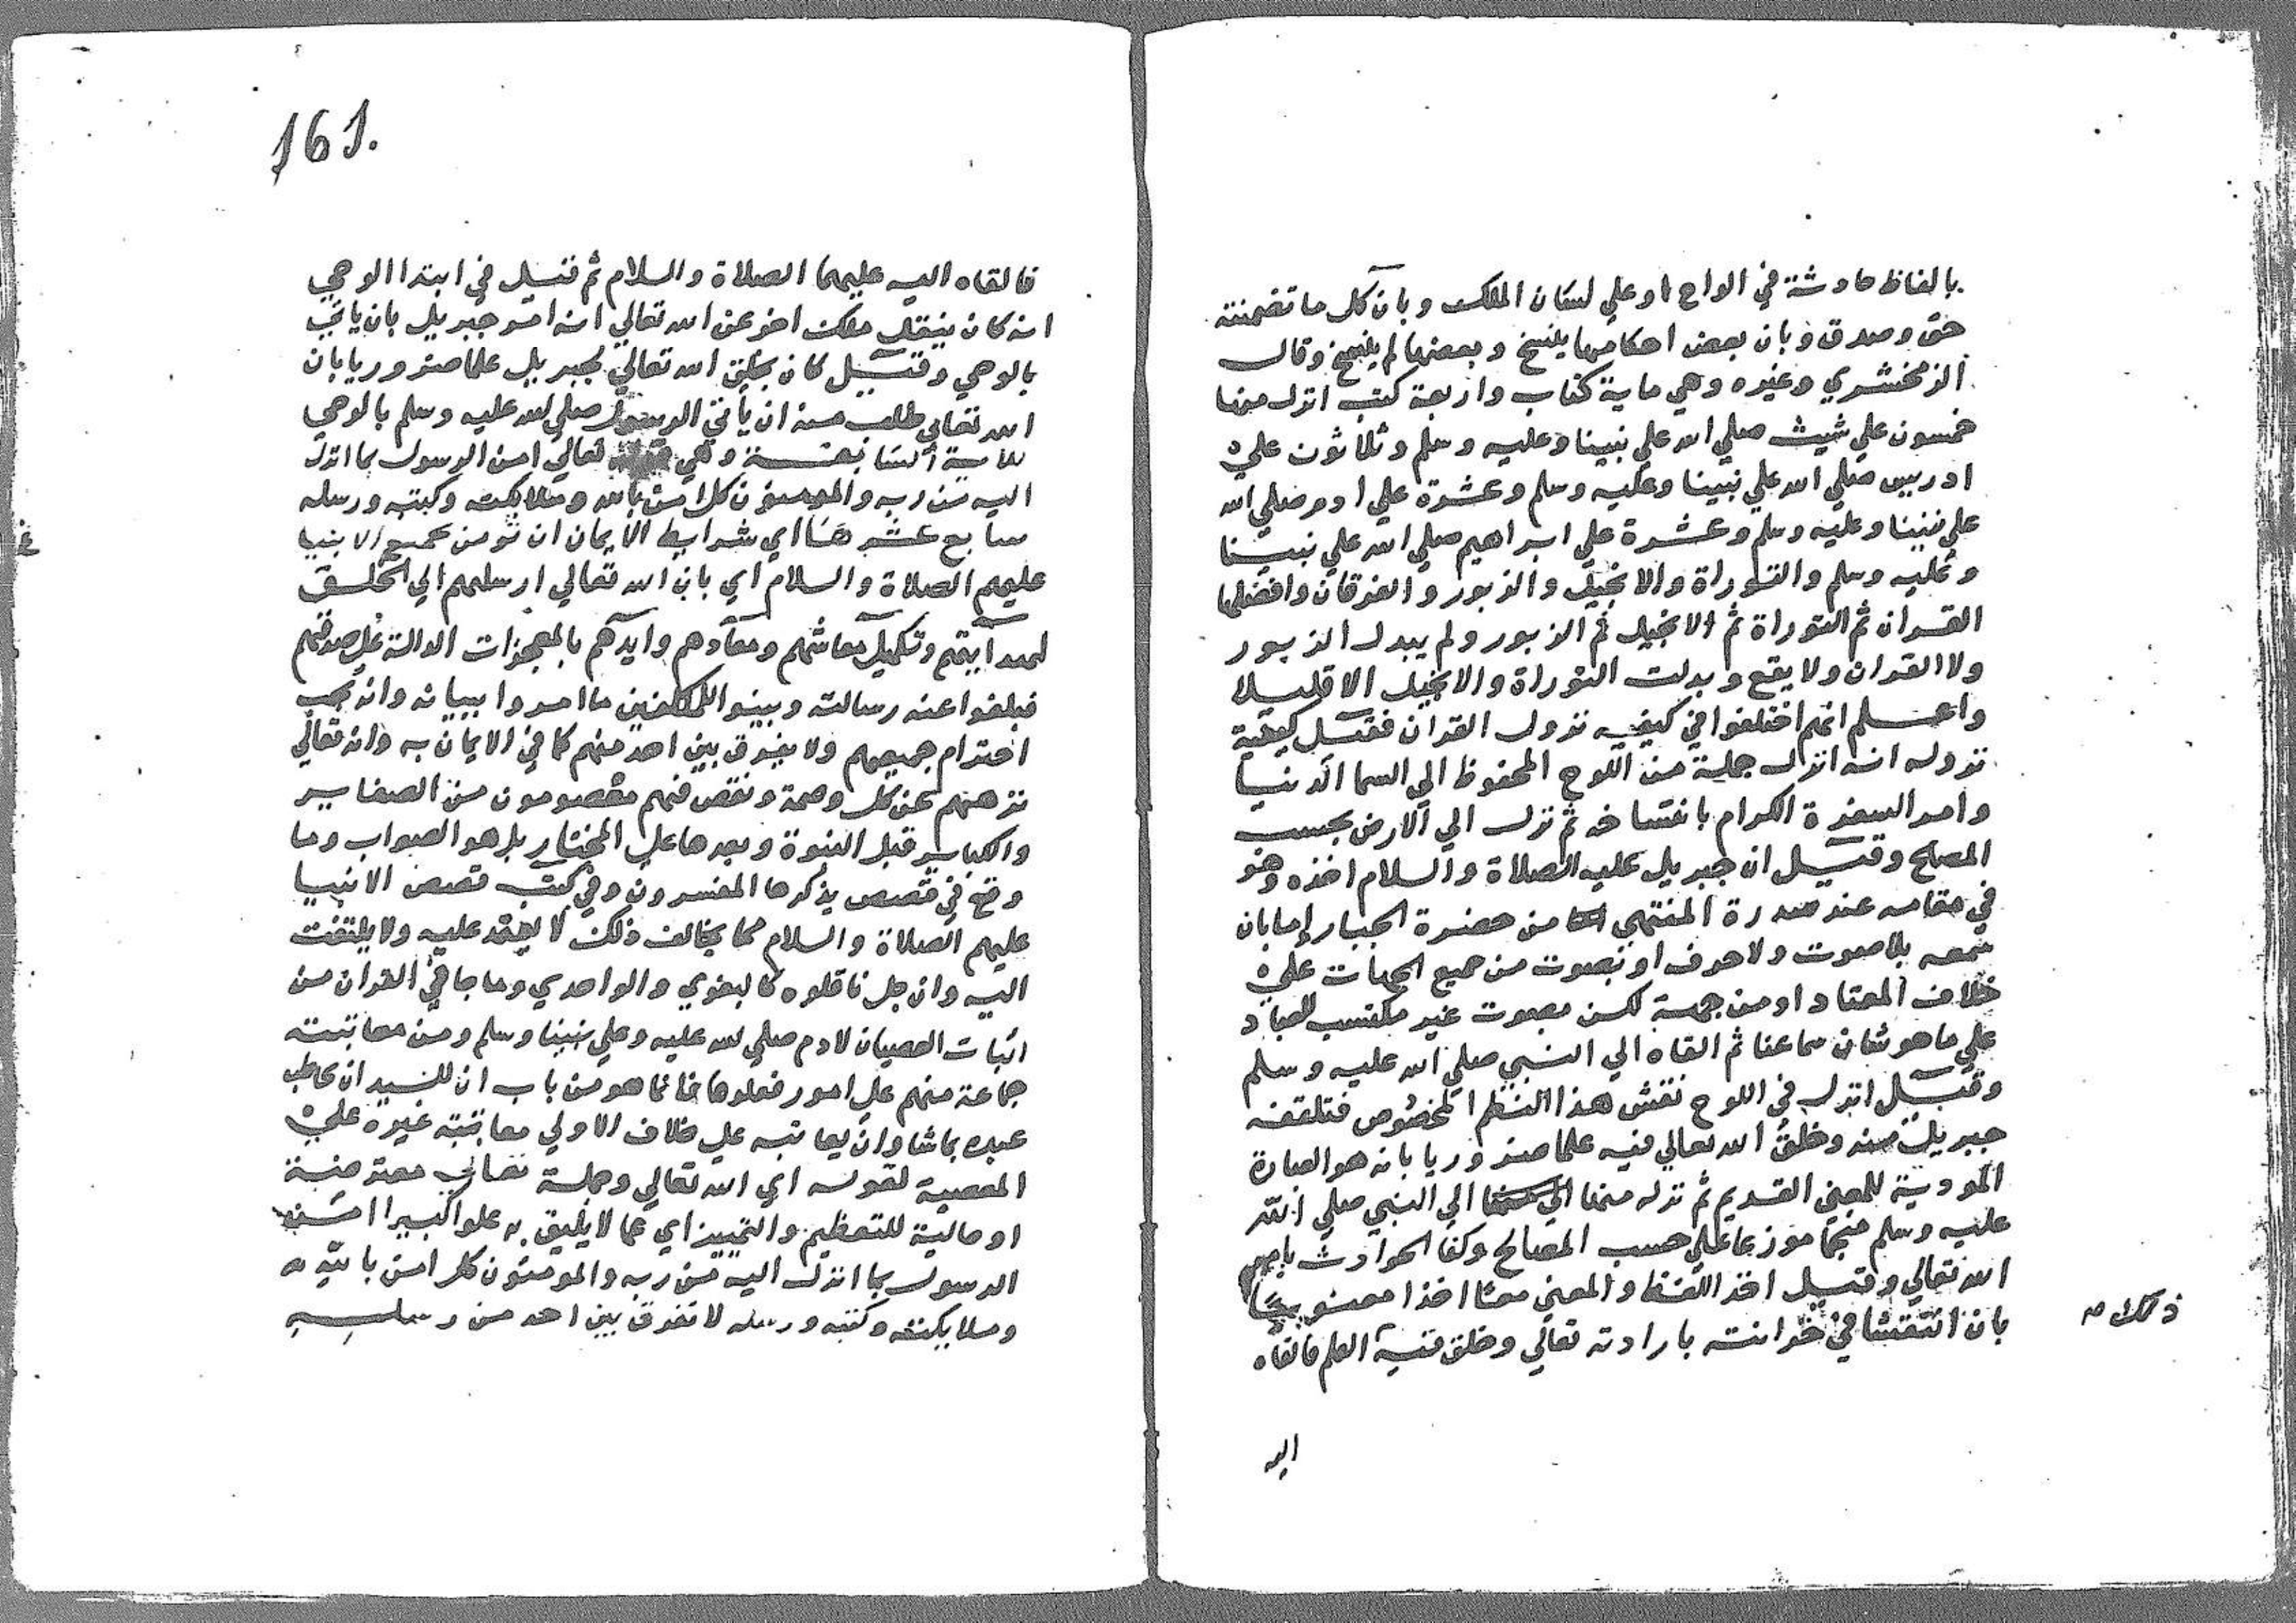 بالفاظ حادثة في الواح او علي لسان الملك وبان كل ما تضمنته
حق وصدق وبان بعض احكامها ينسخ وبعضها لم ينسخ وقال
الزمخشري وغيره وهي ماية كتاب واربعة كتب انزل منها
خمسون علي شيث صلي الله علي نبينا وعليه وسلم وثلاثون علي
ادريس صلي الله علي نبينا وعليه وسلم وعشرة علي ادم صلي الله
علي نبينا وعليه وسلم وعشرة علي ابراهيم صلي الله علي نبينا
وعليه وسلم والتوراة والانجيل والزبور والفرقان وافضلها
القران ثم التوراة ثم الانجيل ثم الزبور ولم يبدل الزبور
ولا القران ولا يقع وبدلت التوراة والانجيل الا قليلا
واعلم انهم اختلفوا في كيفيه نزول القران فقيل كيفية
نزوله انه انزل جملة من اللوح المحفوظ الي السما الدنيا
وامر السفرة الكرام بانتساخه ثم نزل الي الارض بحسب
المصالح وقيل ان جبريل عليه الصلاة والسلام اخذه وهو
في مقامه عند سدرة المنتهي من حضرة الجبار إما بان
سمعه بلا صوت ولا حرف او بصوت من جميع الجهات علي
خلاف المعتاد او من جهة لكن بصوت غير مكتسب للعباد
علي ما هو شان سماعنا ثم القاه الي النبي صلي الله عليه وسلم
وقيل انزل في اللوح نقش هذا النظم المخصوص فتلقفه
جبريل منه وخلق الله تعالي فيه علما ضروريا بانه هو العبارة
المودية للمعني القديم ثم نزله منها الي النبي صلي الله
عليه وسلم منجما موزعا علي حسب المصالح وكفا الحوادث بامر
الله تعالي وقيل اخذ اللفظ والمعني معا اخذا معنويا
ذلك صح
بان انتقشا في خزانته بارادته تعالي وخلق فيه العلم فالقاه
اليه
161.
فالقاه اليه عليهما الصلاة والسلام ثم قيل في ابتدا الوحي
انه كان ينقل ملك اخر عن الله تعالي انه امر جبريل بان ياتي
بالوحي وقيل كان يخلق الله تعالي لجبريل علما ضروريا بان
الله تعالي طلب منه ان ياتي الرسول صلي الله عليه وسلم بالوحي
للاية السابقة وهي تعالي امن الرسول بما انزل
اليه من ربه والمومنون كل امن بالله وملائكته وكتبه ورسله
سابع عشرها اي شرايط الايمان ان تومن بجميع الانبيا
عليهم الصلاة والسلام اي بان الله تعالي ارسلهم الي الخلق
لهدايتهم وتكميل معاشهم ومعادهم وايدهم بالمعجزات الدالة علي صدقهم
فبلغوا عنه رسالته وبينوا للمكلفين ما امروا ببيانه وانه يجب
احترام جميعهم ولا يفرق بين احد منهم كما في الايمان به وانه تعالي
نزههم عن كل وصمة ونقص فهم معصومون من الصغاير
والكباير قبل النبوة وبعدها علي المختار بل هو الصواب وما
وقع في قصص يذكرها المفسرون وفي كتب قصص الانبيا
عليهم الصلاة والسلام مما يخالف ذلك لا يعتمد عليه ولا يلتفت
اليه وان جل ناقلوه كالبغوي والواحدي وما جا في القران من
اثبات العصيان لادم صلي الله عليه وعلي نبينا وسلم ومن معاتبته
جماعة منهم علي امور فعلوها فانما هو من باب ان للسيد ان يخاطب
عبده بما شا وان يعاتبه علي خلاف الاولي معاتبته غيره علي
المعصية لقوله اي الله تعالي وجملة تعالي معترضة
او حالية للتعظيم والتمييز اي عما لا يليق به علوا كبيرا امن
الرسول بما انزل اليه من ربه والمومنون كل امن بالله
وملايكته وكتبه ورسله لا نفرق بين احد من رسله